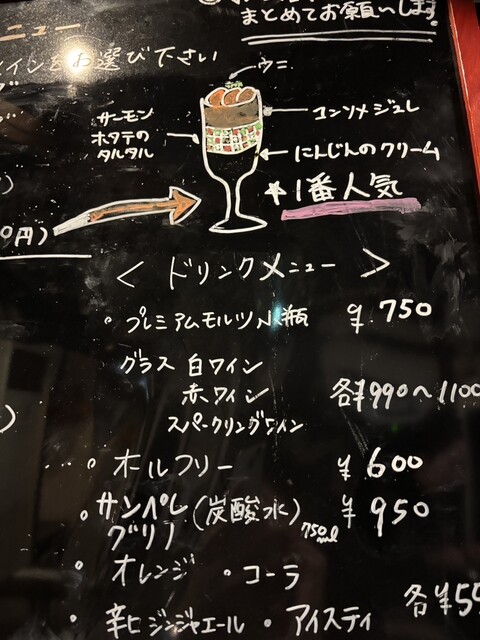 まとめてお願いします
ニュー
インをお選び下さい
ウニ
サーモン
ホタテの
タルタル
コンソメジュレ
にんじんのクリーム
★1番人気
0円)
< ドリンクメニュー >
・プレミアムモルツ小瓶 ¥.750
グラス 白ワイン
赤ワイン 各¥990〜1100
スパークリングワイン
・オールフリー ¥600
・サンペレ
グリノ (炭酸水) 750ml ¥950
・オレンジ ・コーラ
・辛ロジンジャエール ・アイスティ 各¥55